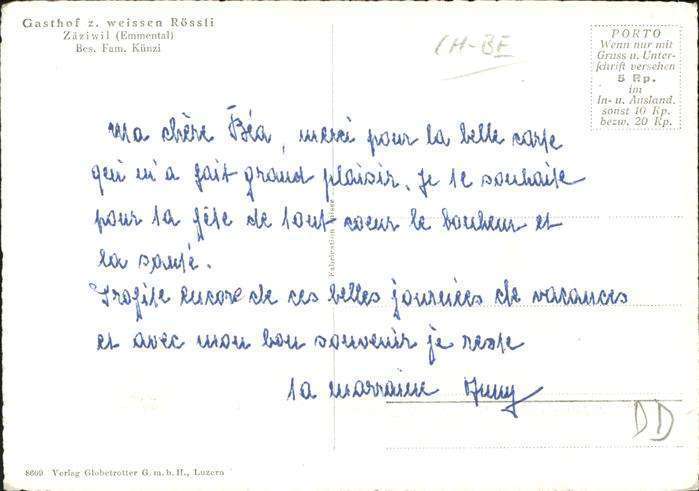 Gasthof z. weissen Rössli
Zäziwil (Emmental)
Bes. Fam. Künzi
CH-BE
PORTO
Wenn nur mit
Gruss u. Unter-
schrift versehen
5 Rp.
im
In- u. Ausland.
sonst 10 Rp.
bezw. 20 Rp.
Ma chère Béa, merci pour la belle carte
qui m'a fait grand plaisir. Je te souhaite
pour ta fête de tout coeur le bonheur et
la santé.
Profite encore de ces belles journées de vacances
et avec mon bon souvenir je reste
ta marraine
DD
Fabrication Suisse
8609 Verlag Globetrotter G. m. b. H., Luzern